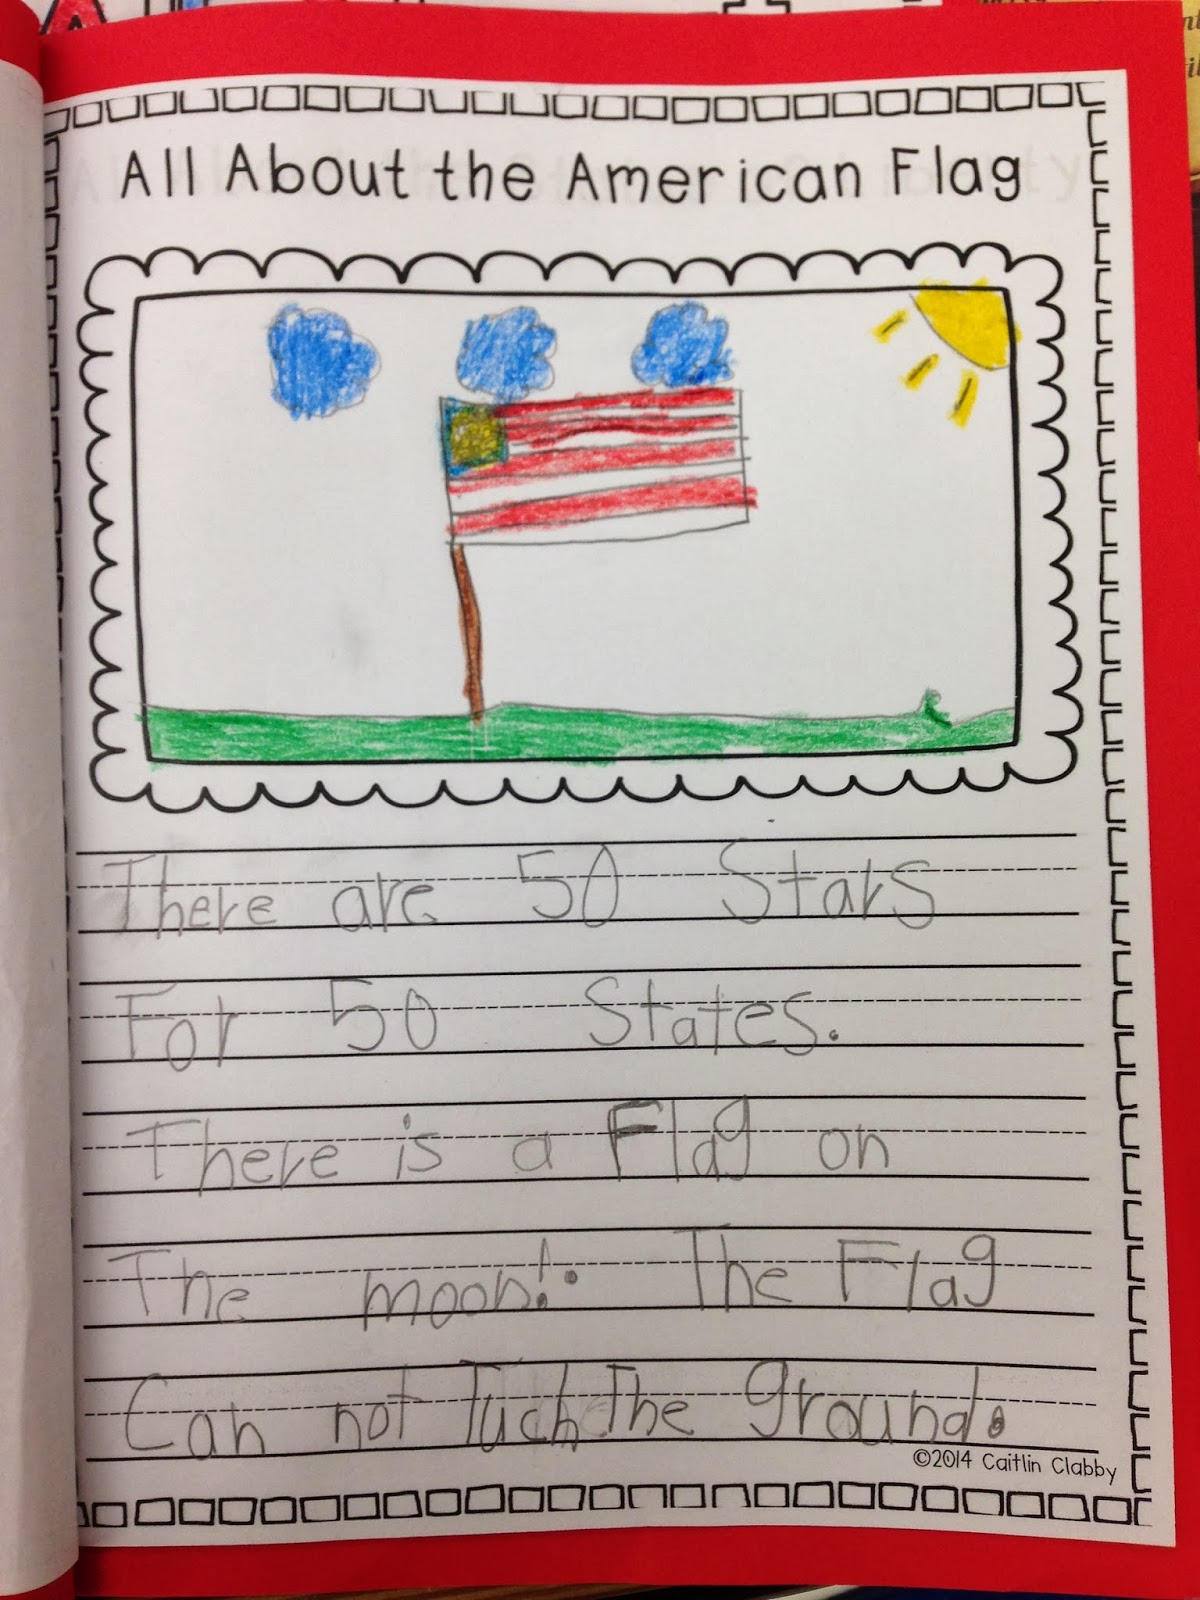 All About the American Flag
There are 50 Stars
For 50 States.
There is a Flag on
The moon!. The Flag
Can not Tuch The ground.
©2014 Caitlin Clabby